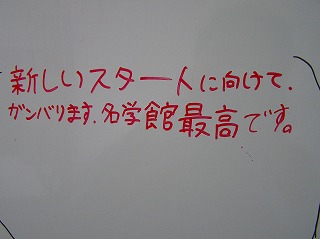 新しいスタートに向けて.
ガンバります.名学館最高です。